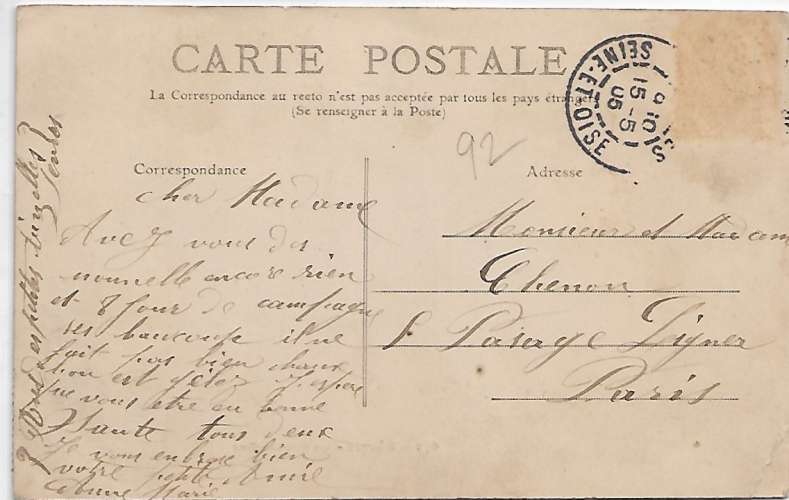 CARTE POSTALE
La Correspondance au recto n'est pas acceptée par tous les pays étrangers
(Se renseigner à la Poste)
Correspondance
Adresse
92
SEINE-ET-OISE
15 -5
05
cher Madame
Avez vous des
nouvelle encore rien
et 8 jour de campagne
ses beaucoup il ne
fait pas bien chaux
l'on est gelez j'espere
que vous etre en bonne
Sante tous deux
Je vous enbrase bien
votre petite Amie
Marie
Monsieur et Madam
Chenon
8 Pasage
Paris
petites